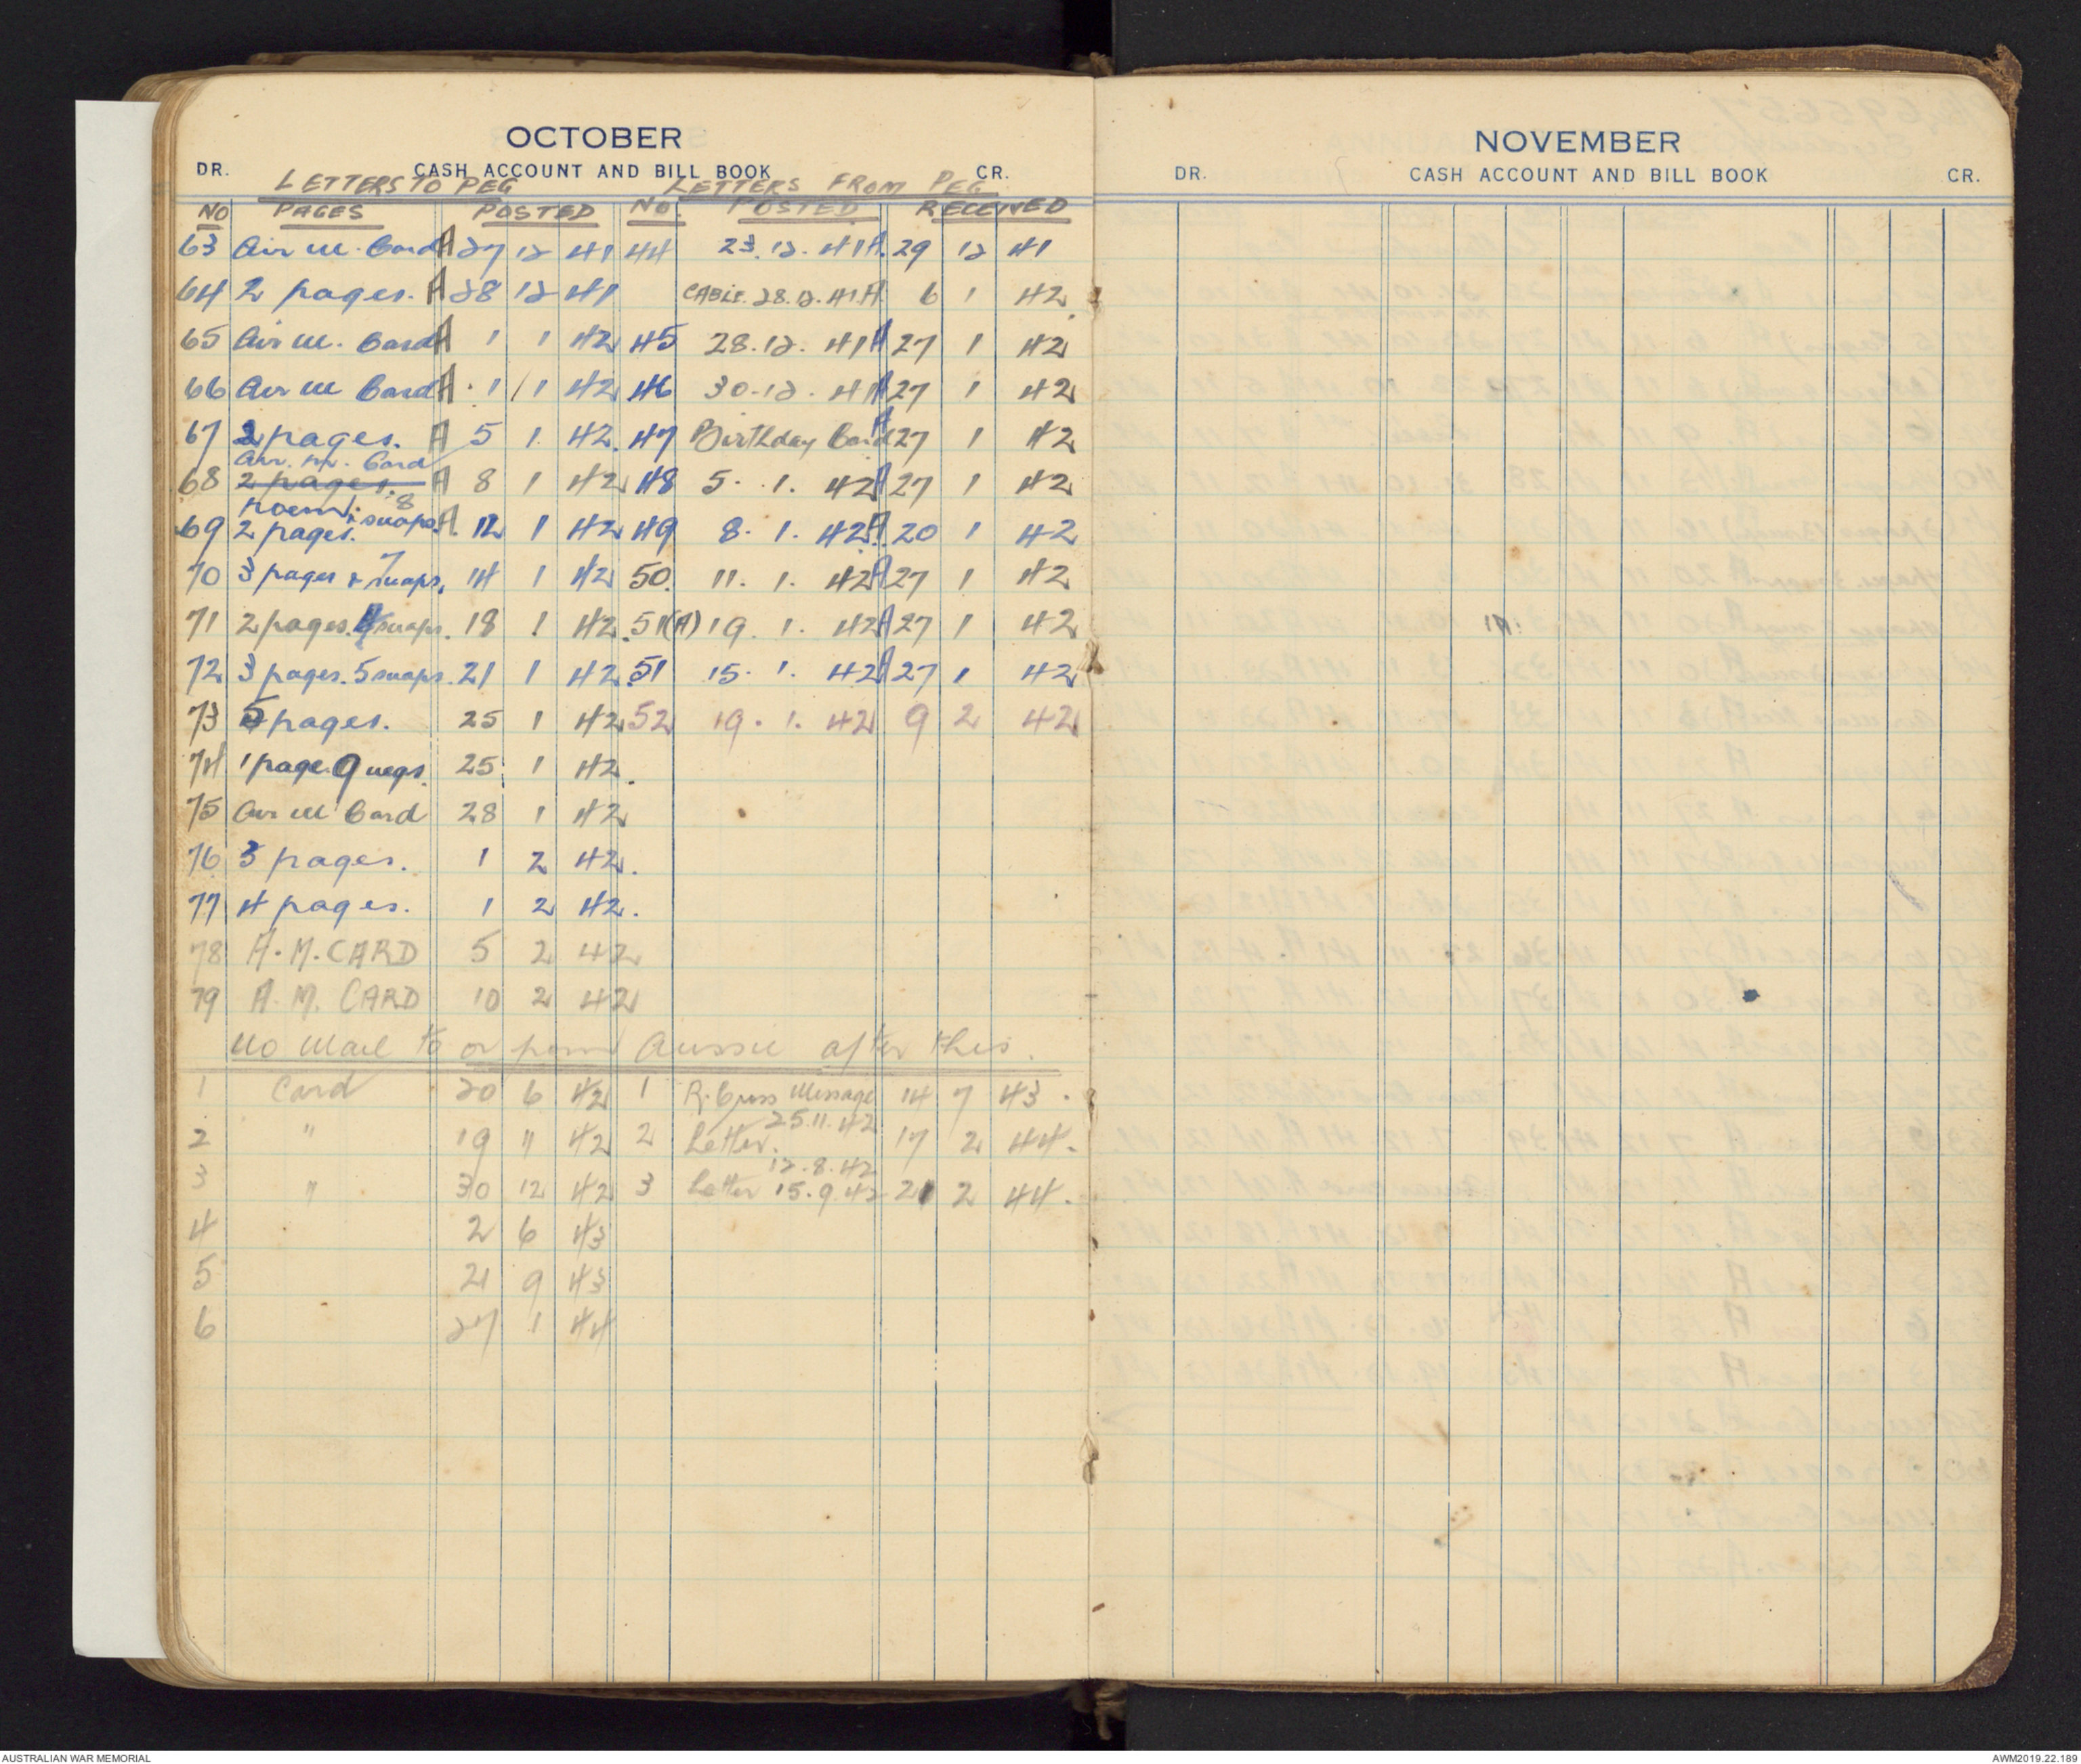 OCTOBER
DR. CASH ACCOUNT AND BILL BOOK CR.
LETTERS TO PEG LETTERS FROM PEG
NO PAGES POSTED NO. POSTED RECEIVED
63 Air M. Card A 27 12 41 44 23.12.41 A. 29 12 41
64 2 pages. A 28 12 41 CABLE. 28.12.41.A. 6 1 42.
65 Air M. Card A 1 1 42 45 28.12.41 A 27 1 42
66 Air M Card A. 1 1 42 46 30.12.41 A 27 1 42
67 2 pages. A 5 1. 42. 47 Birthday Card A 27 1 42
Air. M. Card
68 2 pages. A 8 1 42 48 5. .1. 42 A 27 1 42
Poem. & 8 snaps.
69 2 pages. A. 12 1 42 49 8. 1. 42. A. 20 1 42
70 3 pages & 7 snaps. 14 1 42 50. 11. 1. 42 A 27 1 42
71 2 pages. 4 snaps. 18 1 42. 51(A) 19. 1. 42 A 27 1 42
72 3 pages. 5 snaps. 21 1 42 51 15. 1. 42 A 27 1 42
73 5 pages. 25 1 42 52 19. 1. 42 9 2 42
74 1 page. 9 negs. 25 1 42.
75 Air M Card 28 1 42
76 3 pages. 1 2 42.
77 4 pages. 1 2 42.
78 A.M. CARD 5 2 42
79 A.M. CARD 10 2 42
No Mail to or from Aussie after this.
1 Card 20 6 42 1 R. Cross Message 14 7 43.
25.11.42
2 " 19 11 42 2 Letter. 17 2 44.
12.8.42
3 " 30 12 42 3 Letter 15.9.42 21 2 44.
4 2 6 43
5 21 9 43
6 27 1 44
NOVEMBER
DR. CASH ACCOUNT AND BILL BOOK CR.
AUSTRALIAN WAR MEMORIAL AWM2019.22.189